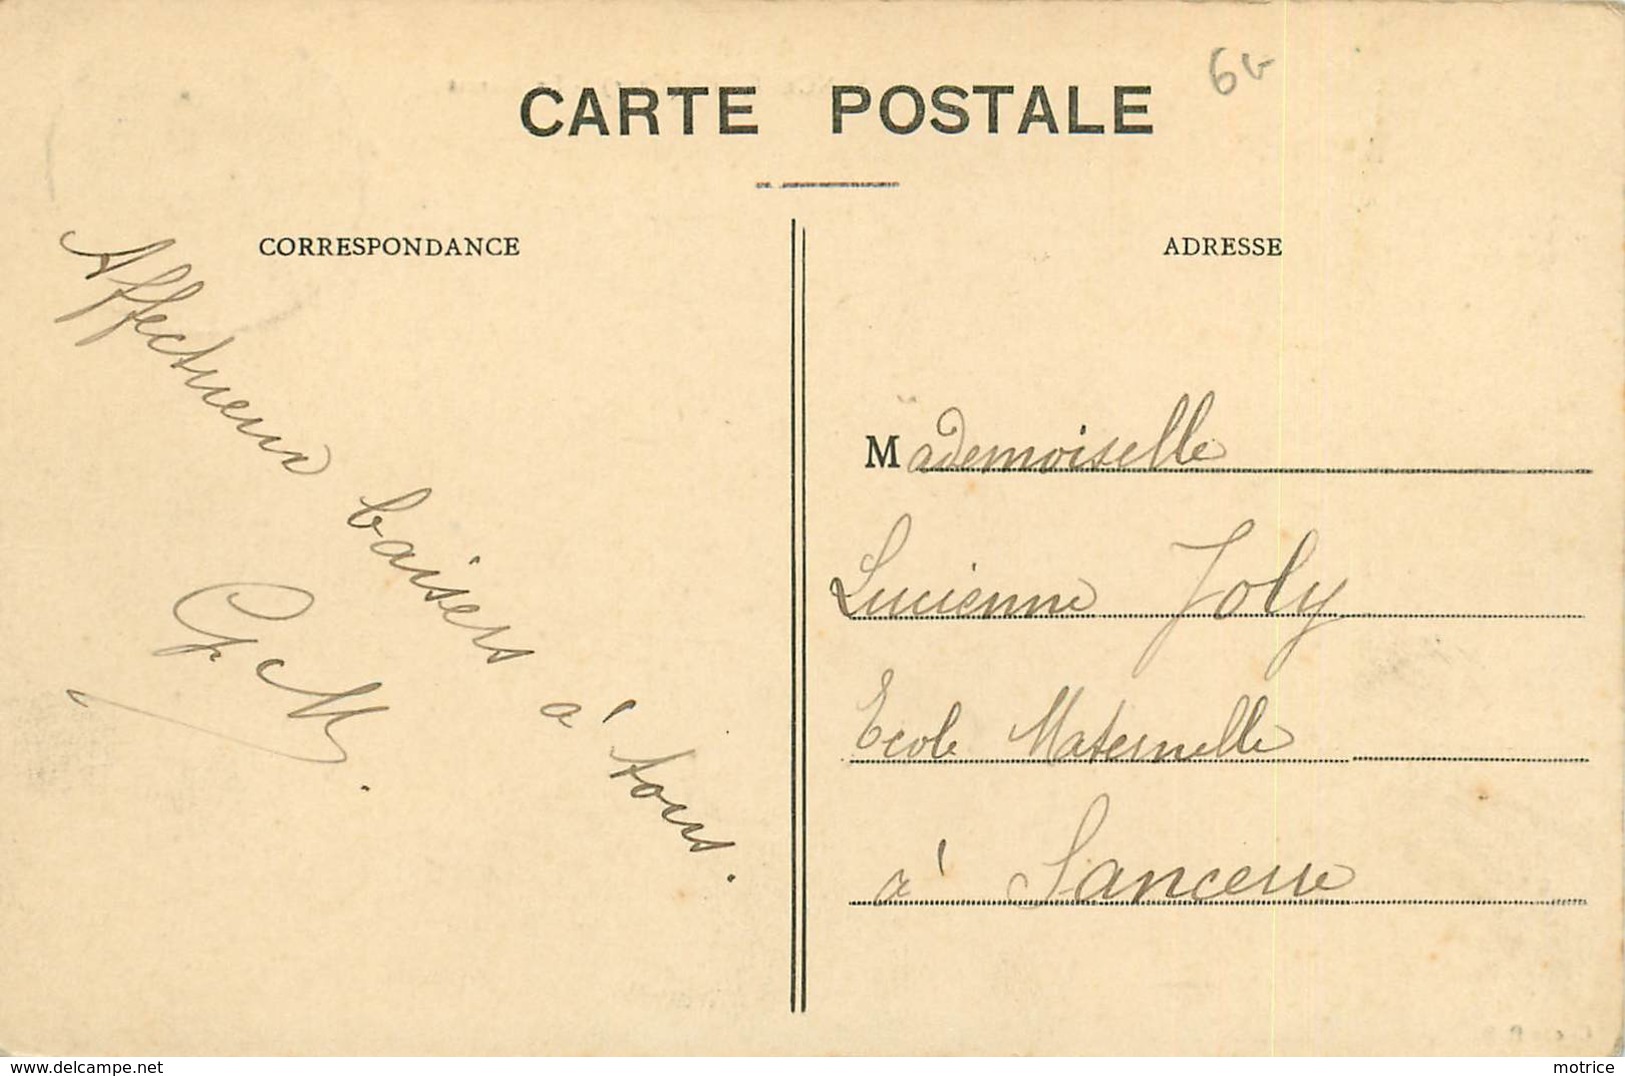 CARTE POSTALE
CORRESPONDANCE
ADRESSE
Affectueux baisers à tous.
Mademoiselle
Lucienne Joly
Ecole Maternelle
à Sancerre
www.delcampe.net
motrice